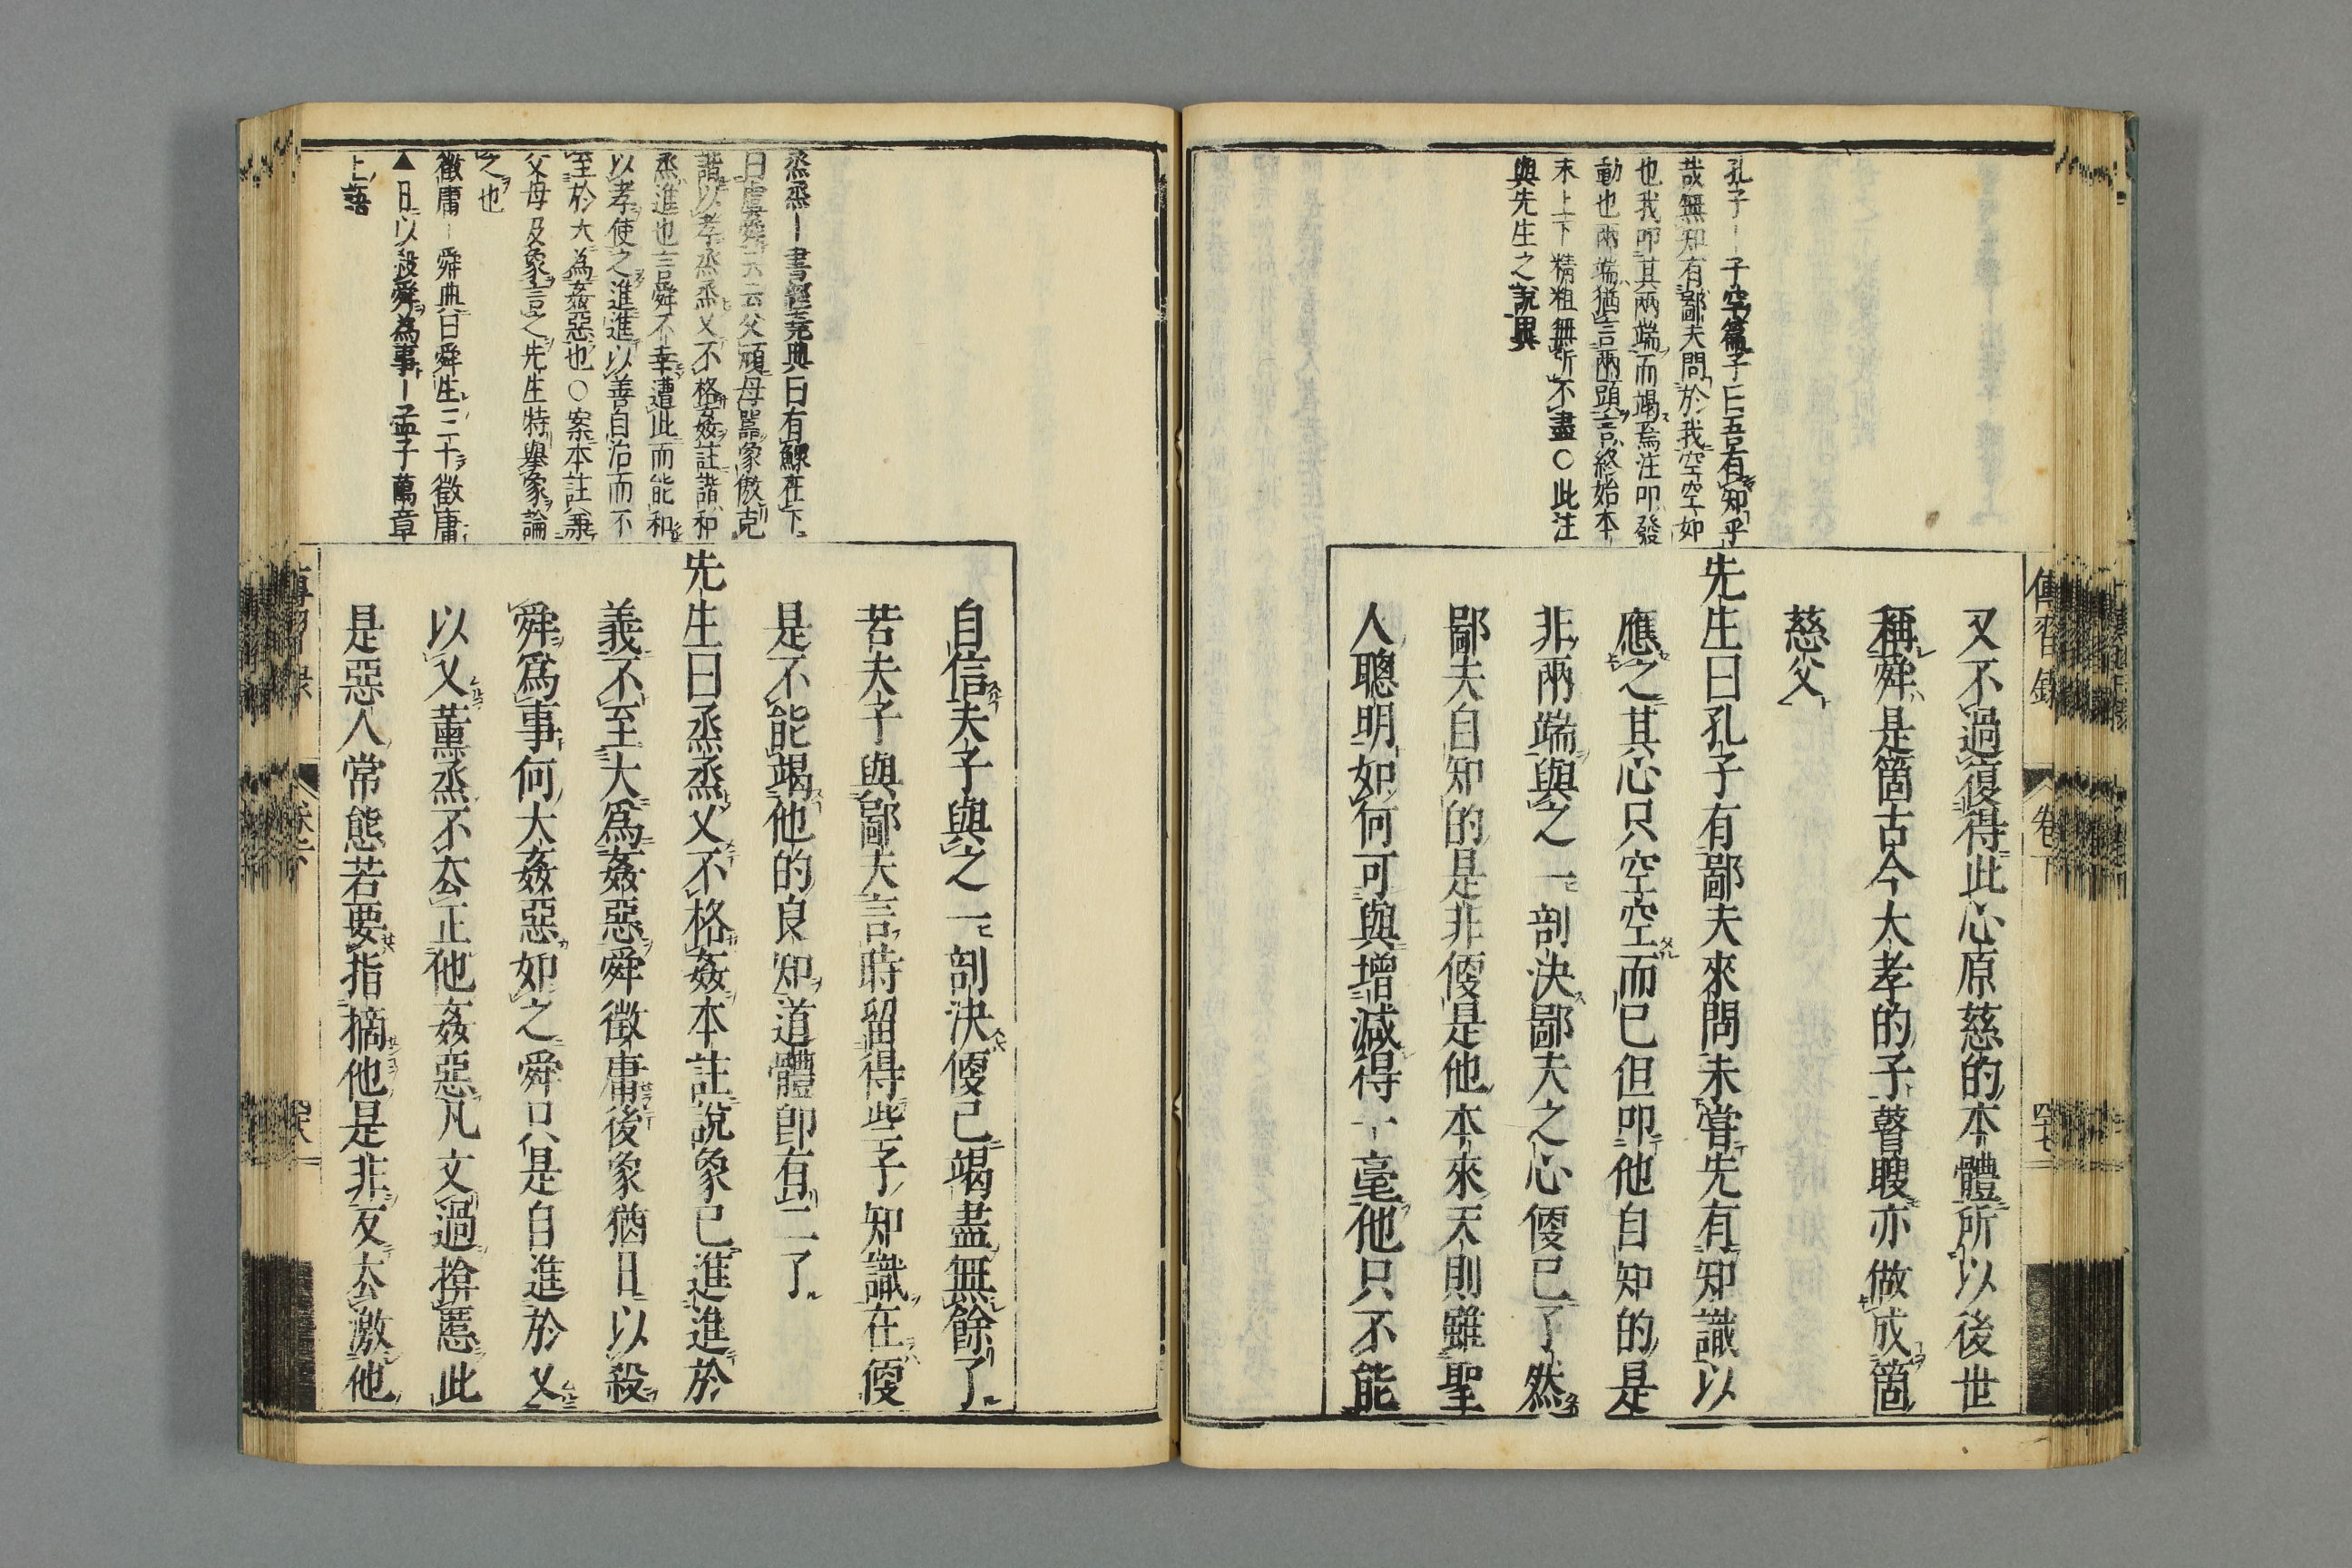 傳習錄
卷下
四七
孔子ー子空篇子曰吾有知乎
哉無知有鄙夫問於我空空如
也我叩其兩端而竭焉注叩發
動也兩端猶言兩頭言終始本
末上下精粗無所不盡○此注
與先生之說異
又不過復得此心原慈的本體所以後世
稱舜是箇古今大孝的子瞽瞍亦做成箇
慈父
先生曰孔子有鄙夫來問未嘗先有知識以
應之其心只空空而已但叩他自知的是
非兩端與之一剖決鄙夫之心便已了然
鄙夫自知的是非便是他本來天則雖聖
人聰明如何可與增減得一毫他只不能
烝烝ー書經堯典曰有鰥在下
曰虞舜云云父頑母嚚象傲克
諧以孝烝烝乂不格姦註諧和
烝進也言舜不幸遭此而能和
以孝使之進進以善自治而不
至於大為姦惡也○案本註兼
父母及象言之先生特舉象論
之也
徵庸ー舜典曰舜生三十徵庸
▲日以殺舜為事ー孟子萬章
上語
自信夫子與之一剖決便已竭盡無餘了
若夫子與鄙夫言時留得些子知識在便
是不能竭他的良知道體即有二了
先生曰烝烝乂不格姦本註說象已進進於
義不至大為姦惡舜徵庸後象猶日以殺
舜爲事何大姦惡如之舜只是自進於乂
以乂薰烝不去正他姦惡凡文過揜慝此
是惡人常態若要指摘他是非反去激他